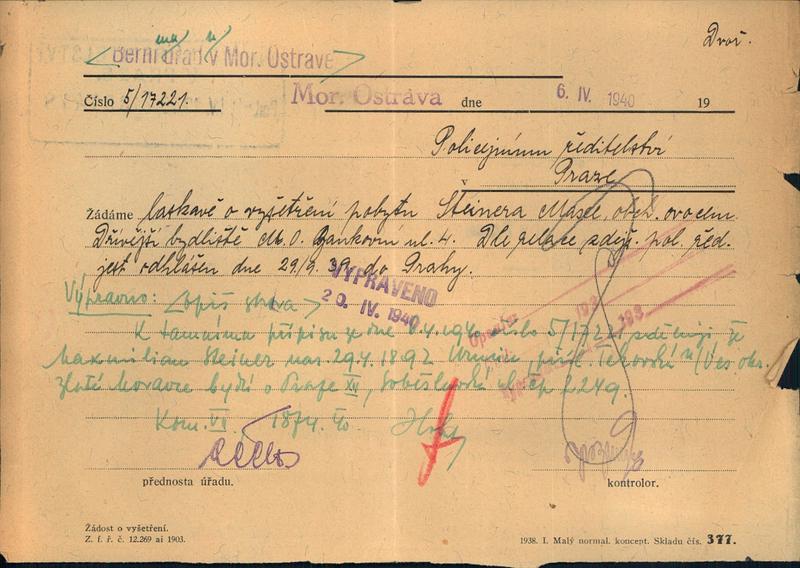 Dvoř.
Berní úřad v Mor. Ostravě
Číslo 5/17221. Mor. Ostrava dne 6. IV. 1940 19
Policejnímu ředitelství
v Praze
Žádáme laskavě o vyšetření pobytu Steinera obch. ovocem.
Dřívější bydliště M. O. Bankovní ul. 4. Dle relace zdejš. pol. řed.
jest odhlášen dne 29/9. 39 do Prahy.
VYPRAVENO
20. IV. 1940
Vypravno: opis
K tamnímu přípisu ze dne 6.4.1940 číslo 5/17221 sděluji, že
Maxmilian Steiner nar. 29.4.1892 Ves okr.
Zlaté Moravce bydlí v Praze XII, Soběslavská ul. čp. 2249.
Kom. VII 1874/40.
přednosta úřadu. kontrolor.
Žádost o vyšetření.
Z. f. ř. č. 12.269 ai 1903.
1938. I. Malý normal. koncept. Skladu čís. 377.